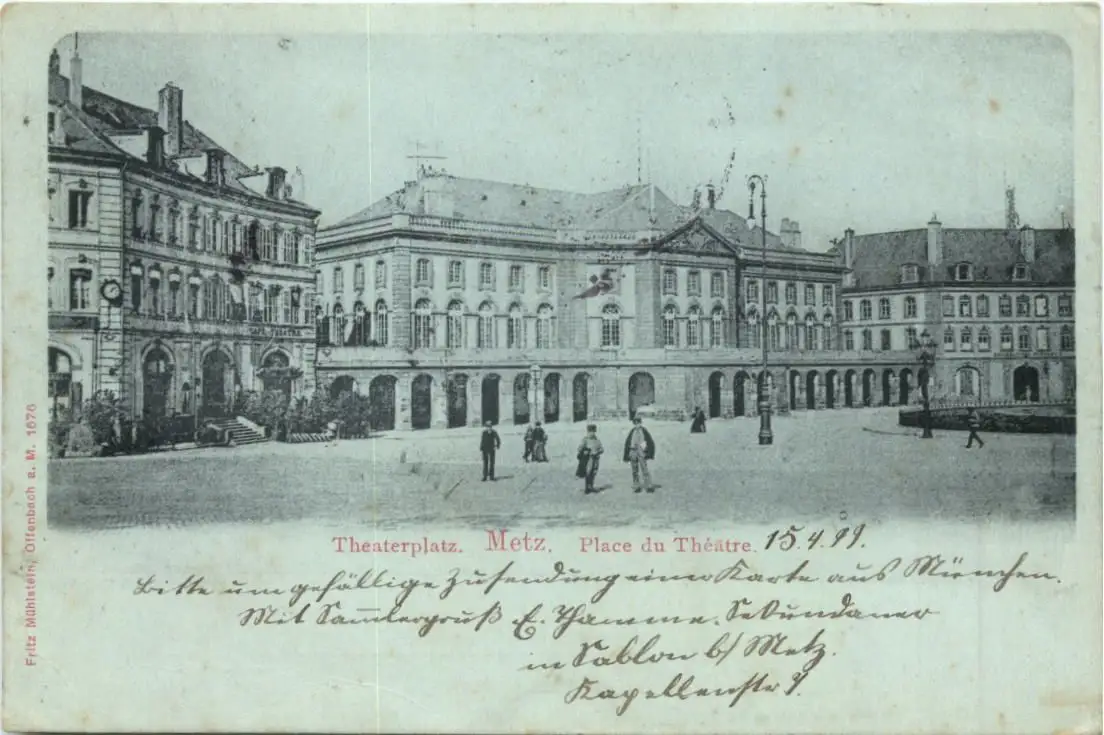 Theaterplatz. Metz. Place du Théâtre. 15.4.99.
Bitte um gefällige Zusendung einer Karte aus München.
Mit Sam̅lergruß E. Thamme. Sekundaner
in Sablon b/ Metz.
Kapellenstr
Fritz Mühlstein, Offenbach a. M. 1676